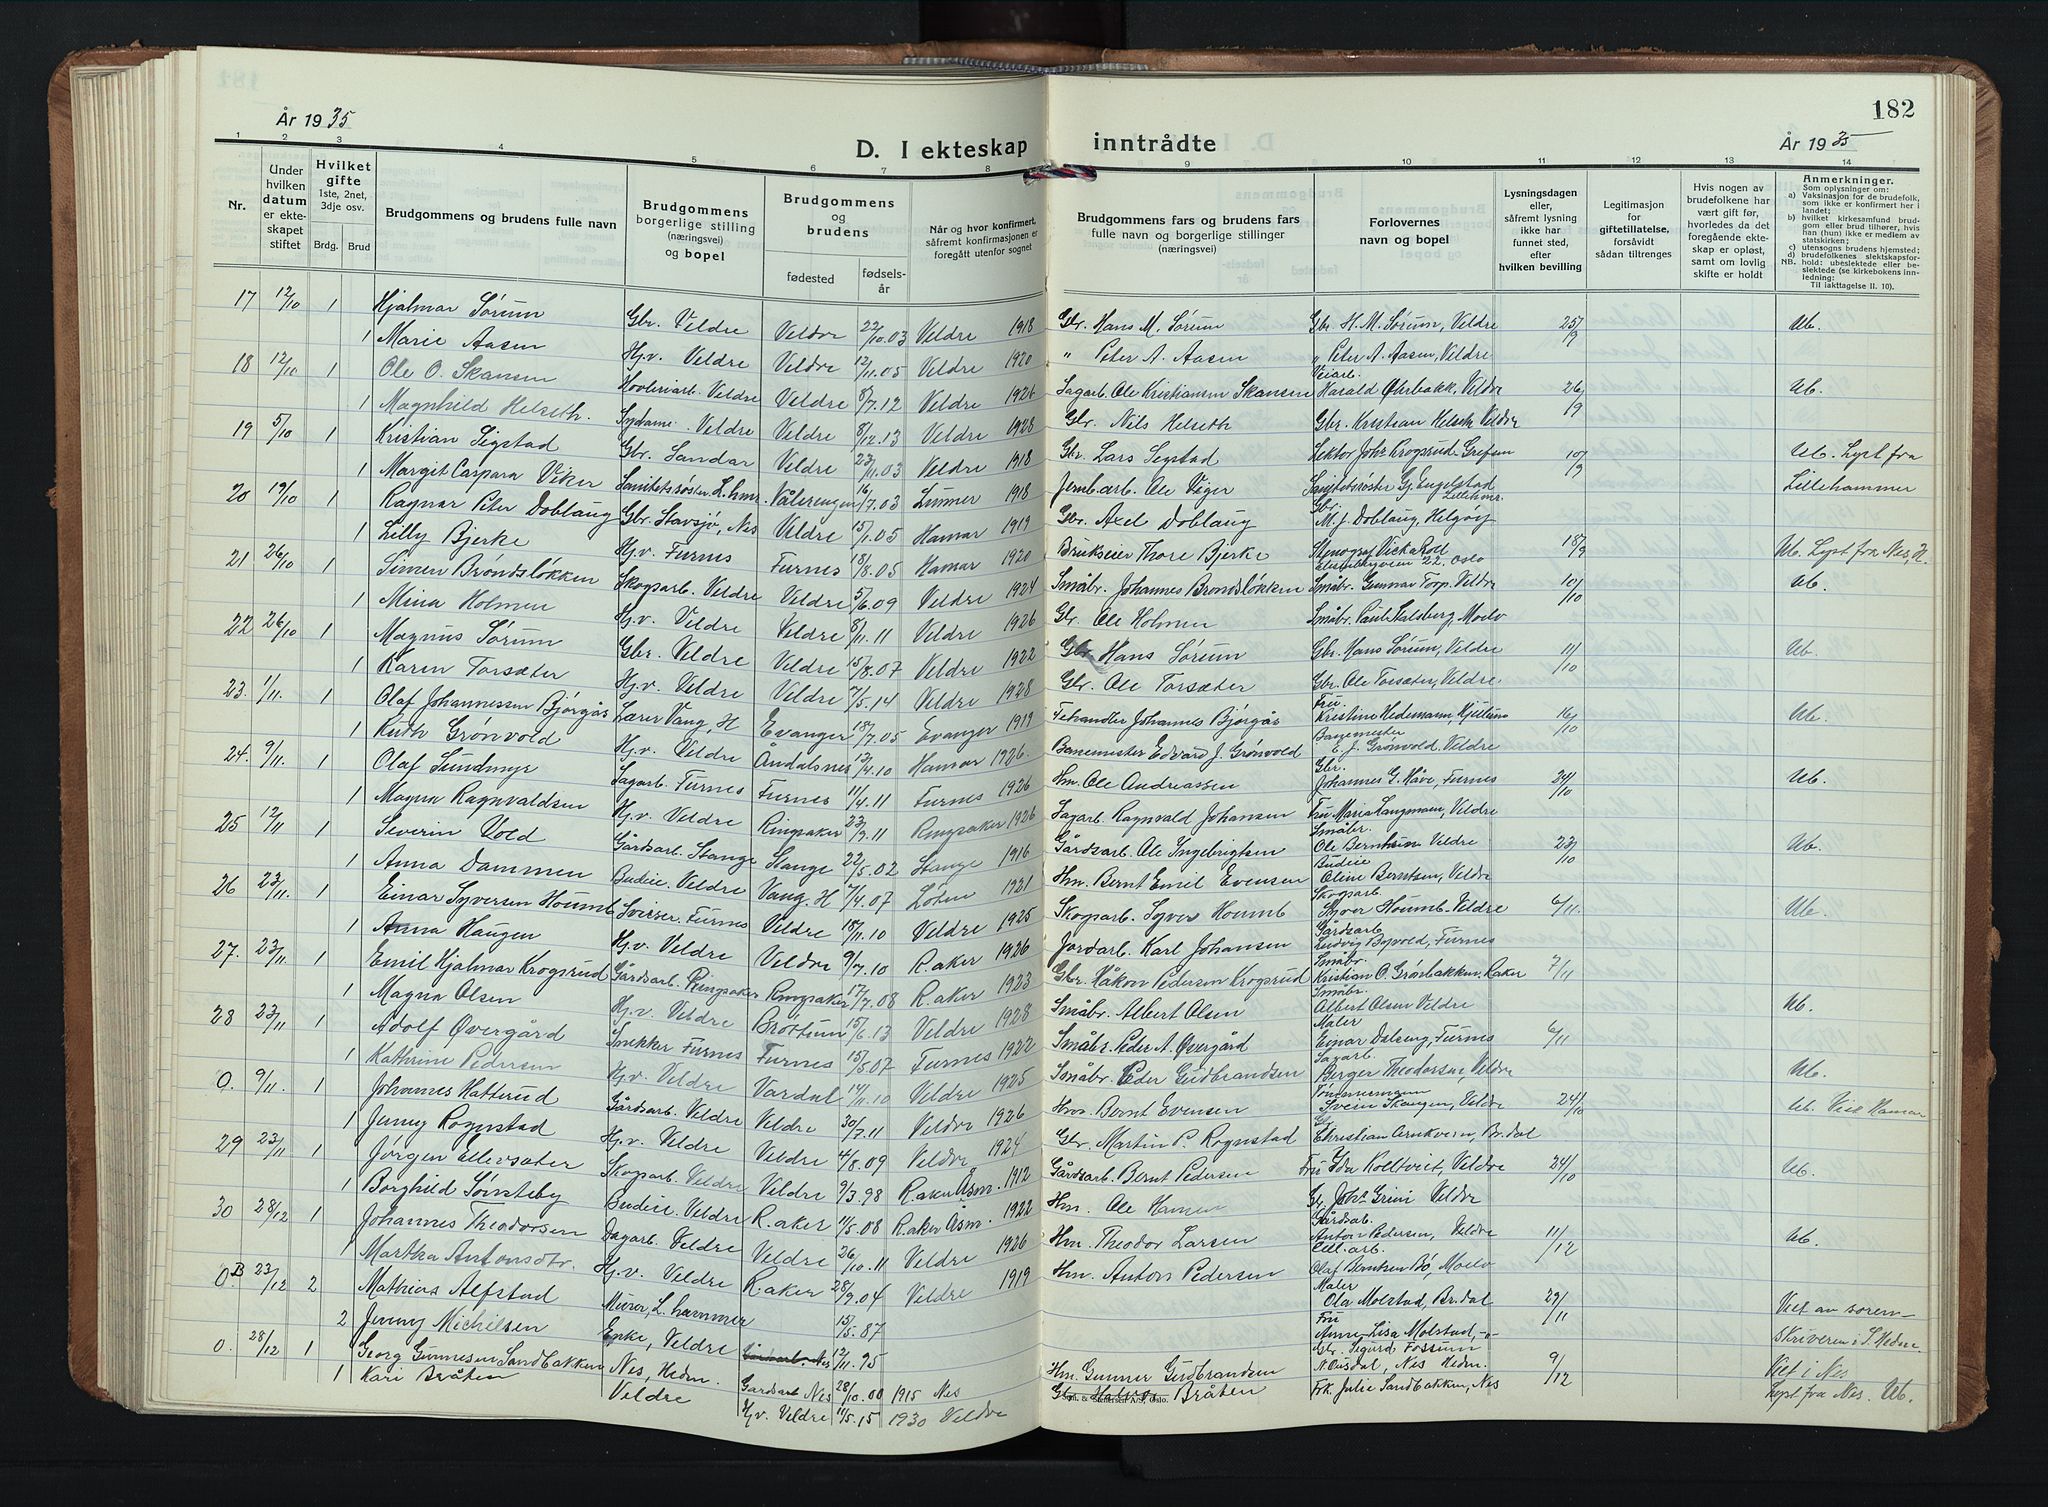 År 1935
D. I ekteskap inntrådte
182
År 1935
1 2 3 4 5 6 7 8 9 10 11 12 13 14
Nr.
Under hvilken datum er ekteskapet stiftet
Hvilket gifte 1ste, 2net, 3dje osv.
Brdg. Brud
Brudgommens og brudens fulle navn
Brudgommens borgerlige stilling (næringsvei) og bopel
Brudgommens og brudens
fødested fødselsår
Når og hvor konfirmert, såfremt konfirmasjonen er foregått utenfor sognet
Brudgommens fars og brudens fars fulle navn og borgerlige stillinger (næringsvei)
Forlovernes navn og bopel
Lysningsdagen eller, såfremt lysning ikke har funnet sted, efter hvilken bevilling
Legitimasjon for giftetillatelse, forsåvidt sådan tiltrenges
Hvis nogen av brudefolkene har vært gift før, hvorledes da det foregående ekteskap er opløst, samt om lovlig skifte er holdt
Anmerkninger.
Som oplysninger om:
a) Vaksinasjon for de brudefolk, som ikke er konfirmert her i landet;
b) hvilket kirkesamfund brudgom eller brud tilhører, hvis han (hun) ikke er medlem av statskirken;
c) utensogns brudens hjemsted;
d) brudefolkenes slektskapsforhold: ubeslektede eller beslektede (se kirkebokens innledning;
NB. Til iakttagelse II. 10).
17 12/10 1 Hjalmar Sørum Gbr. Veldre Veldre 22/10.03 Veldre 1918 Gbr. Hans M. Sørum Gbr. H. M. Sørum, Veldre 25/9 Ub.
1 Marie Aasen Hj.v. Veldre Veldre 12/11.05 Veldre 1920 " Peter A. Aasen " Peter A. Aasen, Veldre
18 12/11 1 Ole O. Skansen Veldre Veldre 8/7.12 Veldre 1926 Sagarb. Ole Kristiansen Skansen Veiarb. Harald Øverbakk, Veldre 26/9 Ub.
1 Magnhild Helseth. Sydame. Veldre Veldre 8/12.13 Veldre 1928 Gbr. Nils Helseth Gbr. Kristian Helseth Veldre
19 5/10 1 Kristian Sigstad Gbr. Sandar Veldre 23/11.03 Veldre 1918 Gbr. Lars Sigstad Lektor Johs. Krogsrud. Grefsen 10/9 Ub. Lyst fra
1 Margit Caspara Viker Sanitetssøster L.hmr. Vålerengen 16/7.03 Lunner 1918 Jernb.arb. Ole Viger Sanitetssøster Gj. Engelstad Lillehmr. Lillehammer
20 19/10 1 Ragnar Peter Doblaug Gbr. Stavsjø, Nes Veldre 15/1.05 Hamar 1919 Gbr. Axel Doblaug Gbr. M. J. Doblaug, Helgøy
1 Lilly Bjerke Hj.v. Furnes Furnes 18/8.05 Hamar 1920 Brukseier Thore Bjerke Stenograf 22. Oslo 18/9 Ub. Lyst fra Nes, H.
21 26/10 1 Simen Brøndsløkken Skogsarb. Veldre Veldre 5/6.09 Veldre 1924 Småbr. Johannes Brøndsløkken Småbr. Gunnar Torp. Veldre 10/10 Ub.
1 Mina Holmen Hj.v. Veldre Veldre 8/11.11 Veldre 1926 Gbr. Ole Holmen Småbr. Moelv
22 26/10 1 Magnus Sørum Gbr. Veldre Veldre 15/8.07 Veldre 1922 Gbr. Hans Sørum Gbr. Hans Sørum, Veldre 11/10 Ub.
1 Karen Torsæter Hj.v. Veldre Veldre 7/5.14 Veldre 1928 Gbr. Ole Torsæter Gbr. Ole Torsæter, Veldre.
23. 1/11. 1 Olaf Johannessen Bjørgås Lærer Vang, H Evanger 18/7.05 Evanger 1919 Johannes Bjørgås Fru Kristine Hedemann, 16/10 Ub.
1 Ruth Grønvold Hj.v. Veldre Åndalsnes 13/4.10 Hamar 1926. Banemester Edvard J. Grønvold Banemester E. J. Grønvold. Veldre
24. 9/11. 1 Olaf Sundmyr Sagarb. Furnes Furnes 11/4.11 Furnes 1926 Hm. Ole Andreassen Gbr. Johannes G. Håve, Furnes 24/10 Ub.
1 Magna Ragnvaldsen Hj.v. Veldre Ringsaker 23/9.11 Ringsaker 1926 Sagarb. Ragnvald Johansen Fru Maria Langmoen, Veldre
25 12/11 1 Severin Vold Gårdsarb. Stange Stange 22/5.02 Stange 1916 Gårdsarb. Ole Ingebrigtsen Småbr. Ole Berntsen Veldre 23/10 Ub.
1 Anna Dammen Budeie. Veldre Vang. H 7/4.07 Løten 1921 Hm. Bernt Emil Evensen Budeie Oline Berntsen, Veldre
26 23/11. 1 Einar Syversen Houmb Sveiser. Furnes Veldre 18/11.10 Veldre 1925 Skogsarb. Syver Houmb Skogsarb. Syver Houmb. Veldre 6/11. Ub.
1 Anna Haugen Hj.v. Veldre Veldre 9/7.10 R.aker 1926 Jordarb. Karl Johansen Gårdsarb Ludvig Furnes
27. 23/11. 1 Emil Hjalmar Krogsrud Gårdsarb. Ringsaker Ringsaker 17/7.08 R.aker 1923 Gbr. Håkon Pedersen Krogsrud Småbr. Kristian O. Grønbakken. Raker 7/11
1 Magna Olsen Hj.v. Veldre Brøttum 15/6.13 Veldre 1928 Småbr. Albert Olsen Småbr. Albert Olsen Veldre Ub.
28 23/11 1 Adolf Øvergård Snekker Furnes Furnes 15/5.07 Furnes 1922 Småbr. Peder A. Øvergård Maler Einar Dalseng, Furnes 6/11
1 Kathrine Pedersen Hj.v. Veldre Vardal 14/11.10 Veldre 1925 Småbr Peder Gudbrandsen Sagarb. Berger Theodorsen, Veldre Ub.
0. 9/11. 1 Johannes Hatterud Gårdsarb. Veldre Veldre 30/7.11 Veldre 1926 Hm. Bernt Evensen Tømmermann Svein Skaugen, Veldre 24/10 Ub. Viet Hamar
1 Jenny Rognstad Hj.v. Veldre Veldre 4/8.09 Veldre 1924 Gbr. Martin P. Rognstad Christian Arnkvern, Br.dal
29 23/11 1 Jørgen Ellevsæter Skogsarb. Veldre Veldre 9/3.98 R.aker Åsm. 1912 Gårdsarb. Bernt Pedersen Fru Ida Kolltveit, Veldre 24/10 Ub.
1 Borghild Sønsteby Budeie. Veldre R.aker 11/5.08 R.aker Åsm. 1922 Hm. Ole Hansen Gbr. Johs. Grini Veldre
30 28/12 1 Johannes Theodorsen Dagarb. Veldre Veldre 26/10.11 Veldre 1926 Hm. Theodor Larsen Gårdsarb. Anton Pedersen, Veldre 11/12 Ub.
1 Martha Antonsdtr. Hj.v. Veldre R.aker 28/9.04 Veldre 1919 Hm. Anton Pedersen Olaf Berntsen Bø, Moelv
0.B 23/12 2 Mathias Alfstad Murer, L.hammer 15/5.87 Maler Ola Molstad, Br.dal 29/11 Viet av soren-
2 Jenny Michelsen Enke, Veldre Gårdsarb. Nes 12/11.95 Fru Anne Lisa Molstad, -"- skriveren i S. Hedm.
0. 28/12 1 Georg Gunnesen Sandbakken Nes, Hedm. Gårdsarb Nes 28/10.00 1915 Nes Hm. Gunner Gudbrandsen Gbr. Sigurd Fossum Nes Hedm. 9/12 Viet i Nes
1 Kari Bråten Veldre Hj.v. Veldre 11/5.15 1930 Veldre Gbr. Bråten Frk. Julie Sandbakken, Nes Lyst fra Nes. Ub.